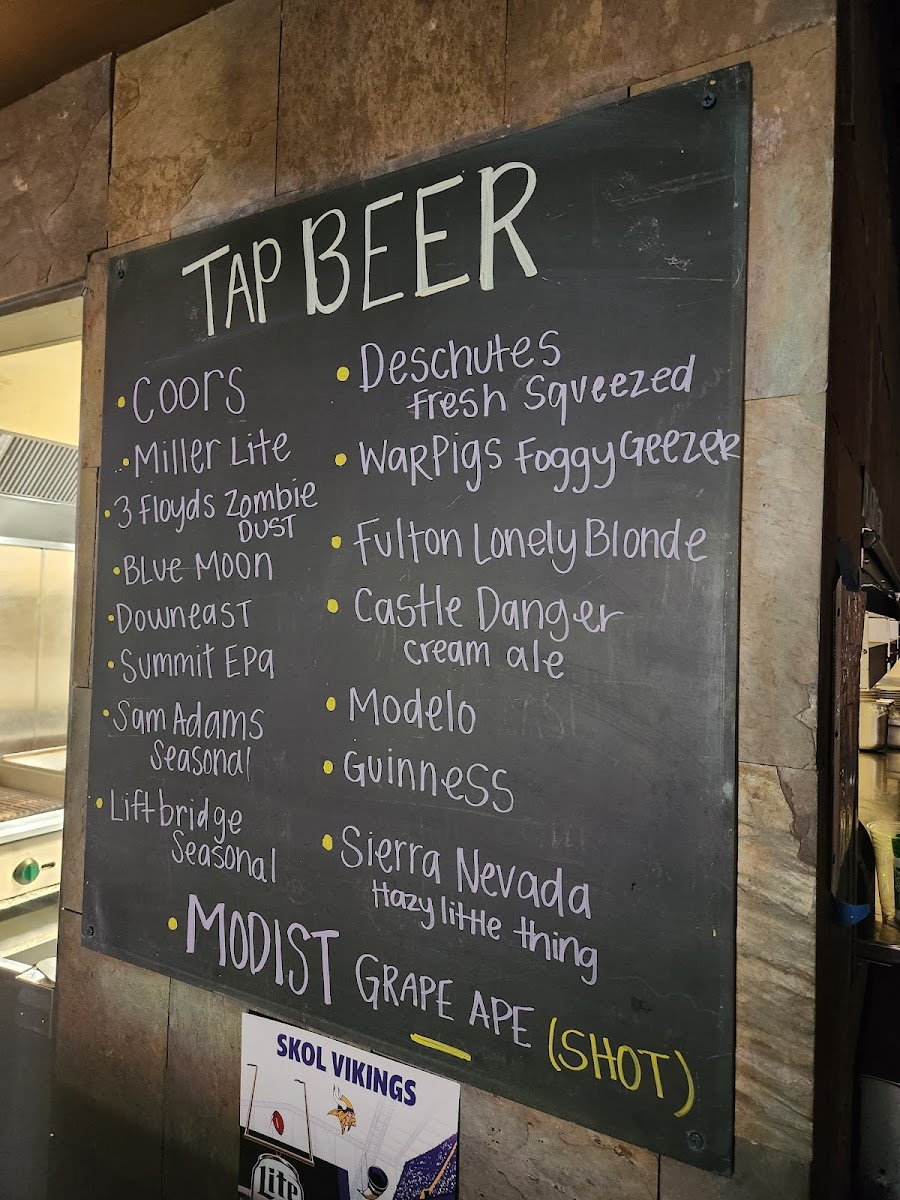 TAP BEER
• Coors
• Miller Lite
• 3 Floyds Zombie
DUST
• Blue Moon
• Downeast
• Summit EPA
• Sam Adams
Seasonal
• Liftbridge
Seasonal
• Deschutes
Fresh Squeezed
• WarPigs Foggy Geezer
• Fulton Lonely Blonde
• Castle Danger
cream ale
• Modelo
• Guinness
• Sierra Nevada
Hazy little thing
• MODIST GRAPE APE (SHOT)
SKOL VIKINGS
Lite